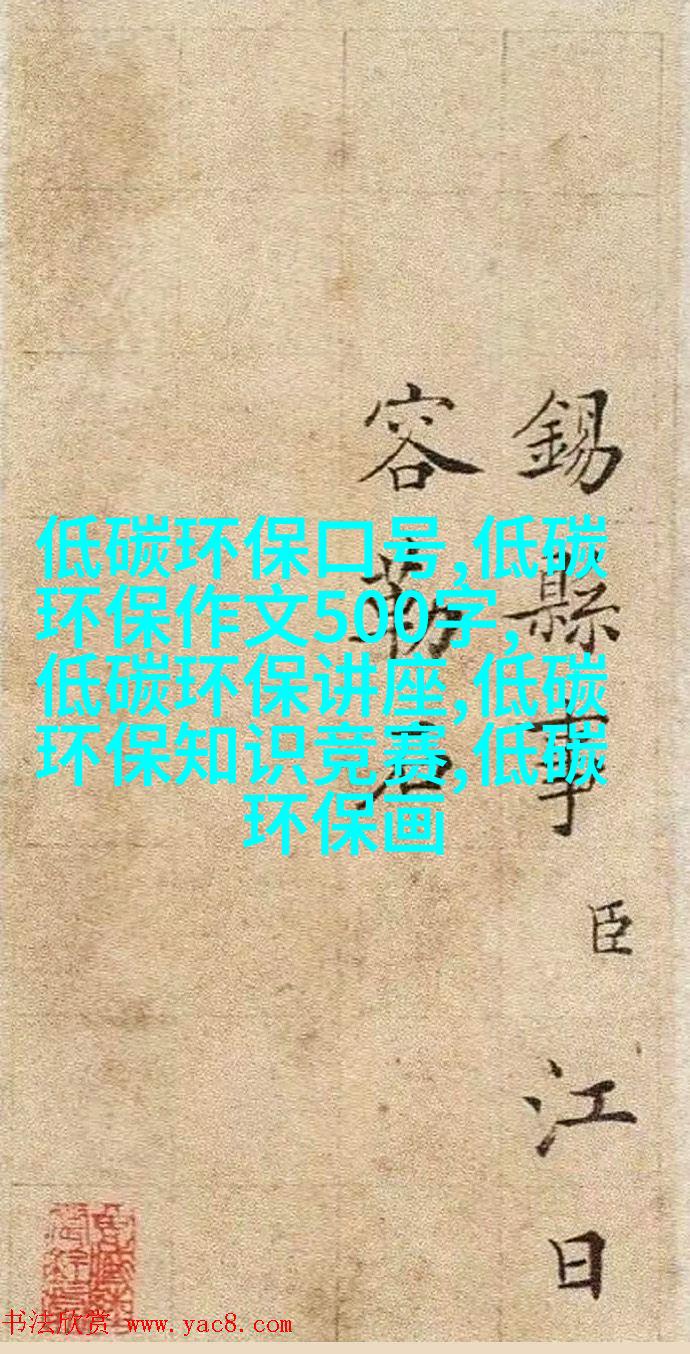 錫縣事臣江日
容勒石
低碳环保口号,低碳
环保作文500字,
低碳环保讲座,低碳
环保知识竞赛,低碳
环保画
书法欣赏 www.yac8.com